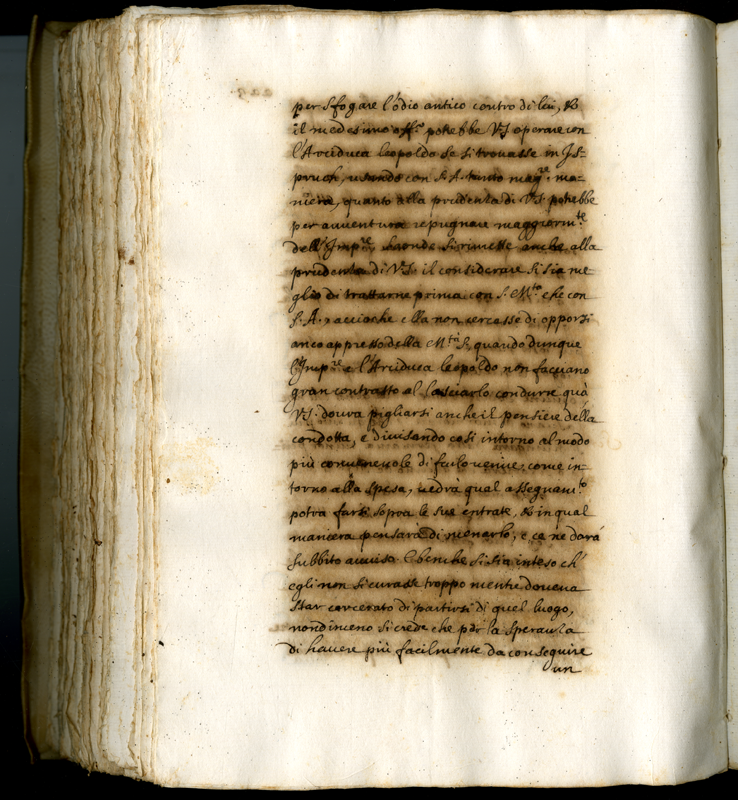 per sfogare l'odio antico contro di lui, &
il medesimo off.o potrebbe V.S. operare con
l'Arciduca leopoldo se si trouasse in Is=
pruch, usando con S. A. tanto mag.re ma=
niera, quanto alla prudenza di V.S. potrebbe
per auuentura repugnare maggiorm.te
dell'Imp.re, laonde si rimette anche alla
prudenza di V.S. il considerare si sia me=
glio di trattarne prima con S. M.tà che con
S. A., accioche ella non cercasse di opporsi
anco appresso della M.tà S. quando dunque
l'Imp.re e l'Arciduca leopoldo non faceuano
gran contrasto al lasciarlo condurre quà
V.S. dourà pigliarsi anche il pensiere della
condotta, e diuisando cosi intorno al modo
più conueneuole di farlo uenire, come in=
torno alla spesa, uedrà qual assegnam.to
potrà farsi sopra le sue entrate, & in qual
maniera pensarà di menarlo, e ce ne darà
subbito auuiso. E benche si sia inteso ch'
egli non si curasse troppo mentre doueua
star carcerato di partirsi di quel luogo,
nondimeno si crede che p la speranza
di hauere più facilmente da conseguire
un